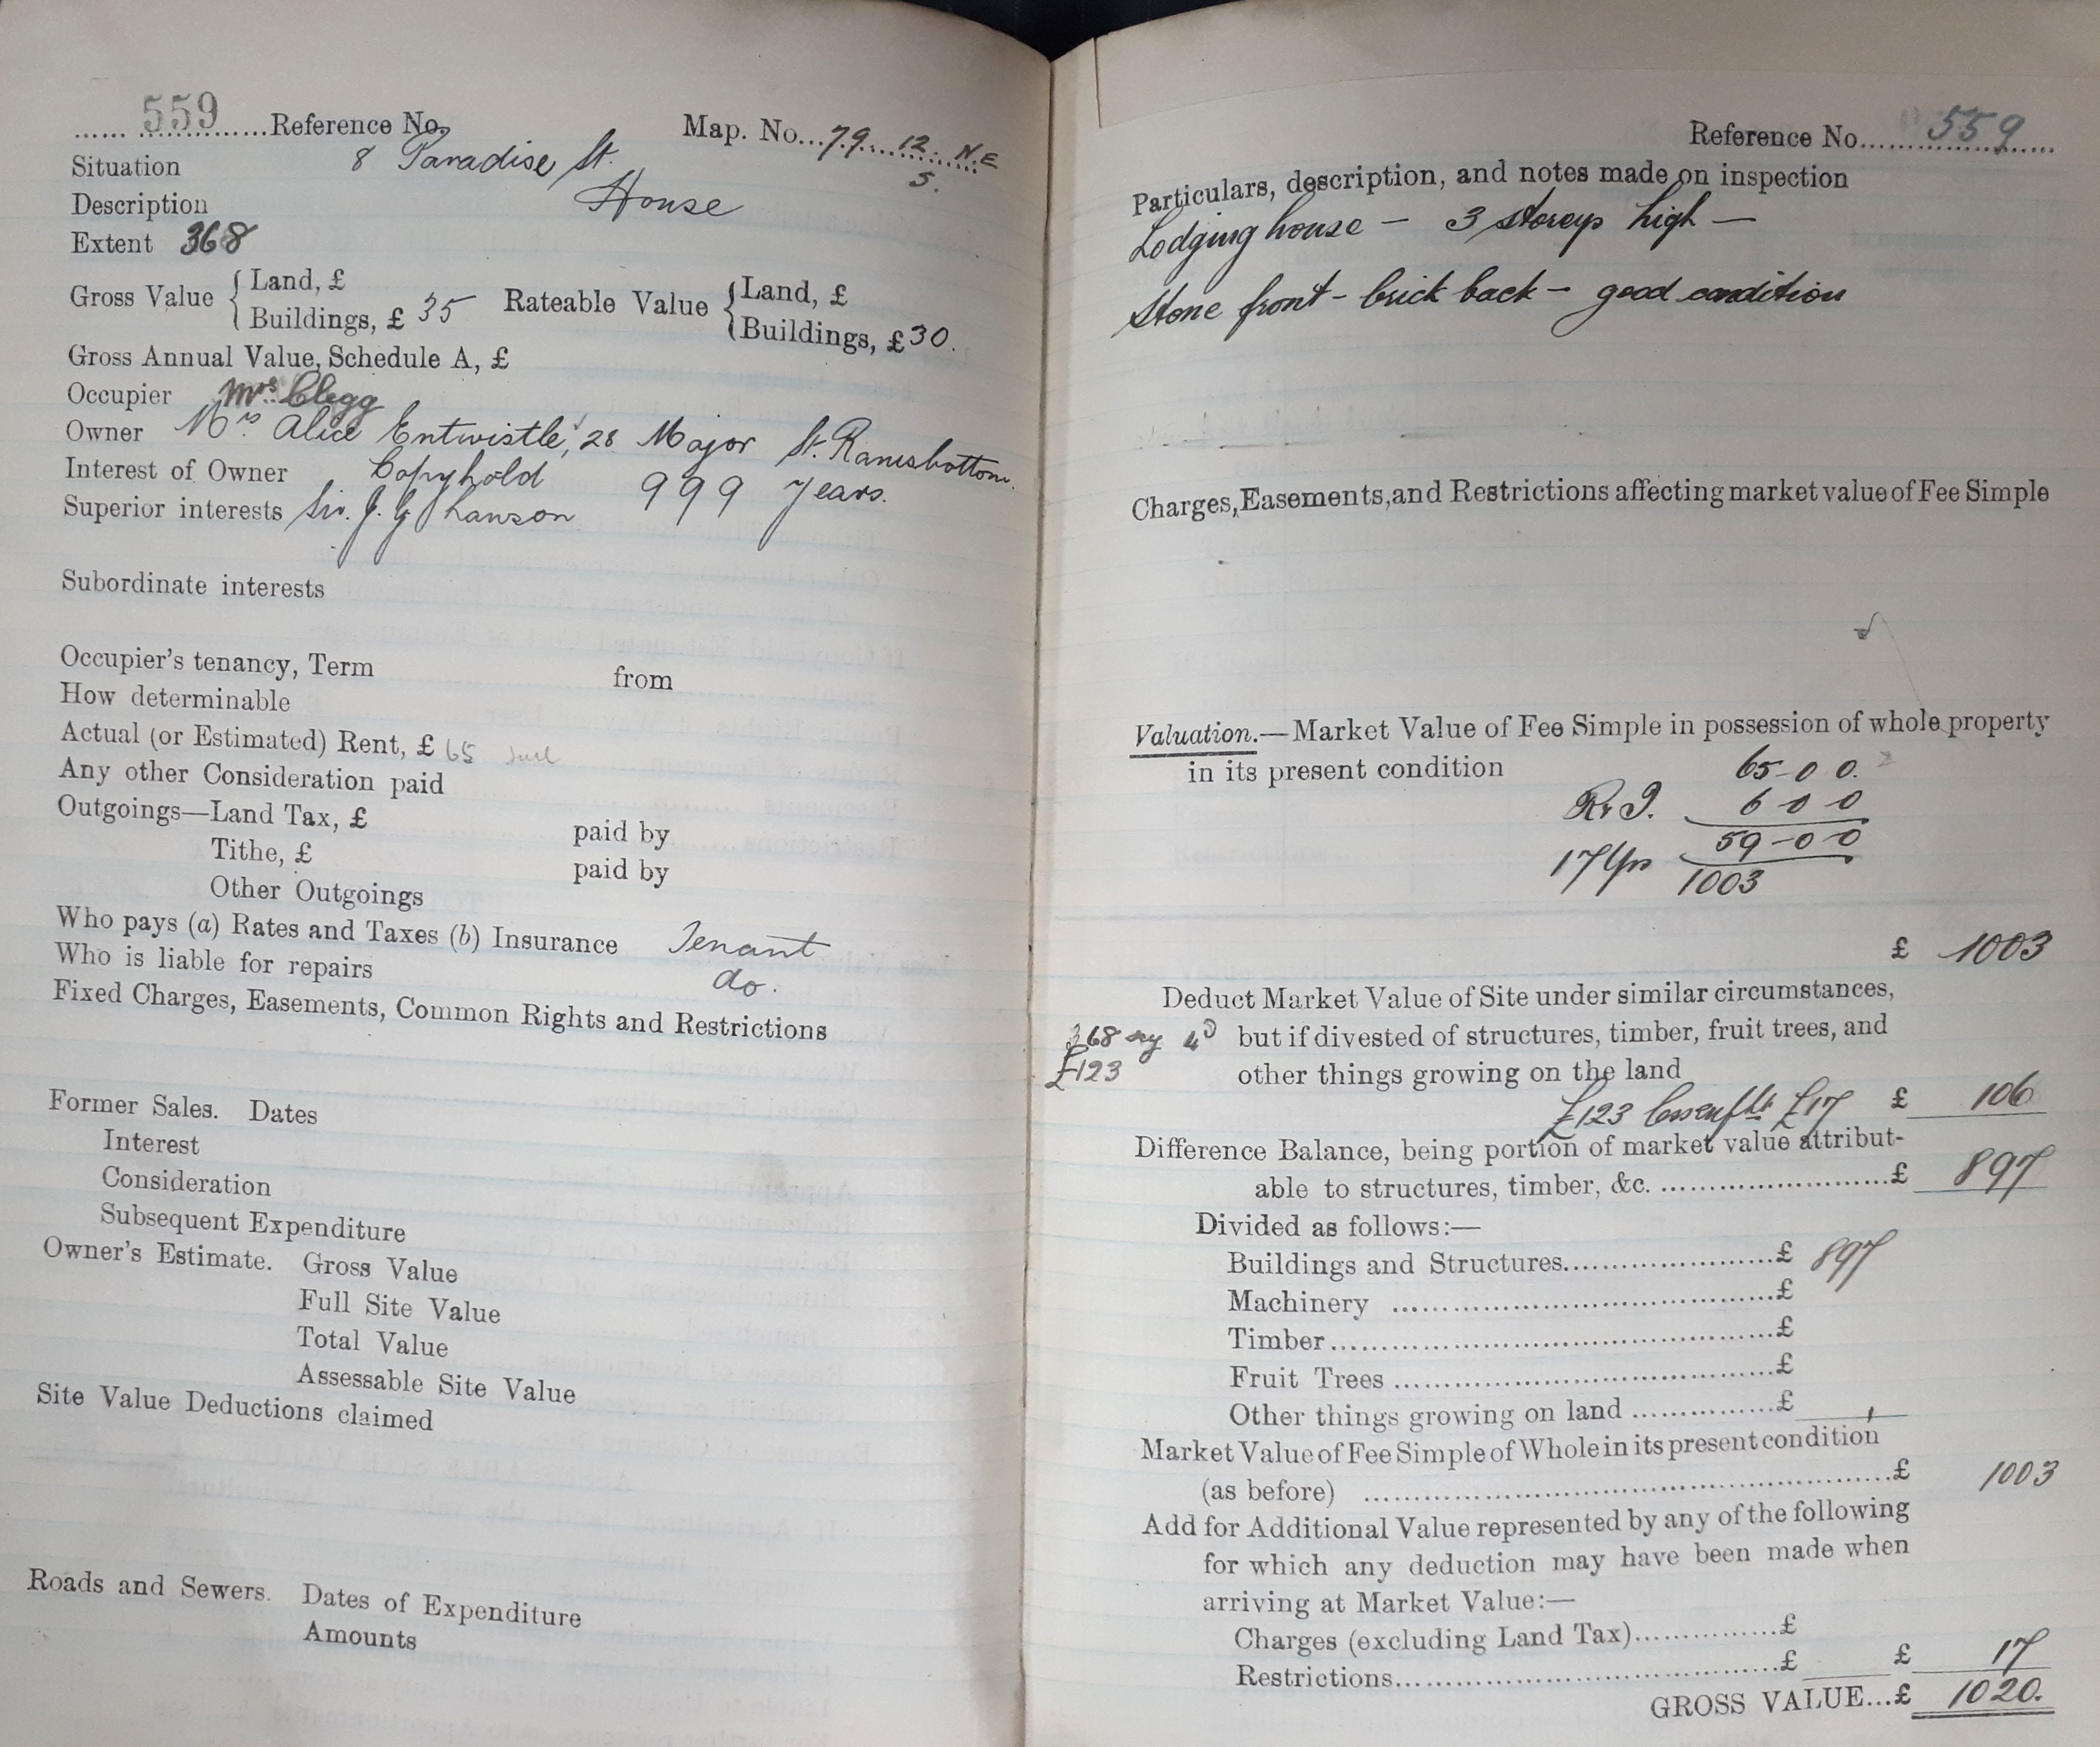 559 Reference No. Map. No. 79. 12. N.E
5.
Situation 8 Paradise St.
Description House
Extent 368
Gross Value { Land, £
Buildings, £ 35
Rateable Value { Land, £
Buildings, £ 30.
Gross Annual Value, Schedule A, £
Occupier Mrs. Clegg
Owner Mrs Alice Entwistle, 28 Major St. Ramsbottom.
Interest of Owner Copyhold 999 years.
Superior interests Sir. J. G Lawson
Subordinate interests
Occupier's tenancy, Term from
How determinable
Actual (or Estimated) Rent, £ 65
Any other Consideration paid
Outgoings—Land Tax, £ paid by
Tithe, £ paid by
Other Outgoings
Who pays (a) Rates and Taxes (b) Insurance Tenant
Who is liable for repairs do.
Fixed Charges, Easements, Common Rights and Restrictions
Former Sales. Dates
Interest
Consideration
Subsequent Expenditure
Owner's Estimate. Gross Value
Full Site Value
Total Value
Assessable Site Value
Site Value Deductions claimed
Roads and Sewers. Dates of Expenditure
Amounts
Reference No. 559
Particulars, description, and notes made on inspection
Lodging house - 3 storeys high -
Stone front - brick back - good condition
Charges, Easements, and Restrictions affecting market value of Fee Simple
Valuation.—Market Value of Fee Simple in possession of whole property
in its present condition
65-0 0.
R & I. 6 0 0
59-0-0
17 Yrs 1003
£ 1003
Deduct Market Value of Site under similar circumstances,
368 sq 4D but if divested of structures, timber, fruit trees, and
£123 other things growing on the land
£123 £17 £ 106
Difference Balance, being portion of market value attribut-
able to structures, timber, &c. £ 897
Divided as follows:—
Buildings and Structures £ 897
Machinery £
Timber £
Fruit Trees £
Other things growing on land £
Market Value of Fee Simple of Whole in its present condition
(as before) £ 1003
Add for Additional Value represented by any of the following
for which any deduction may have been made when
arriving at Market Value:—
Charges (excluding Land Tax) £
Restrictions £ £ 17
GROSS VALUE...£ 1020.